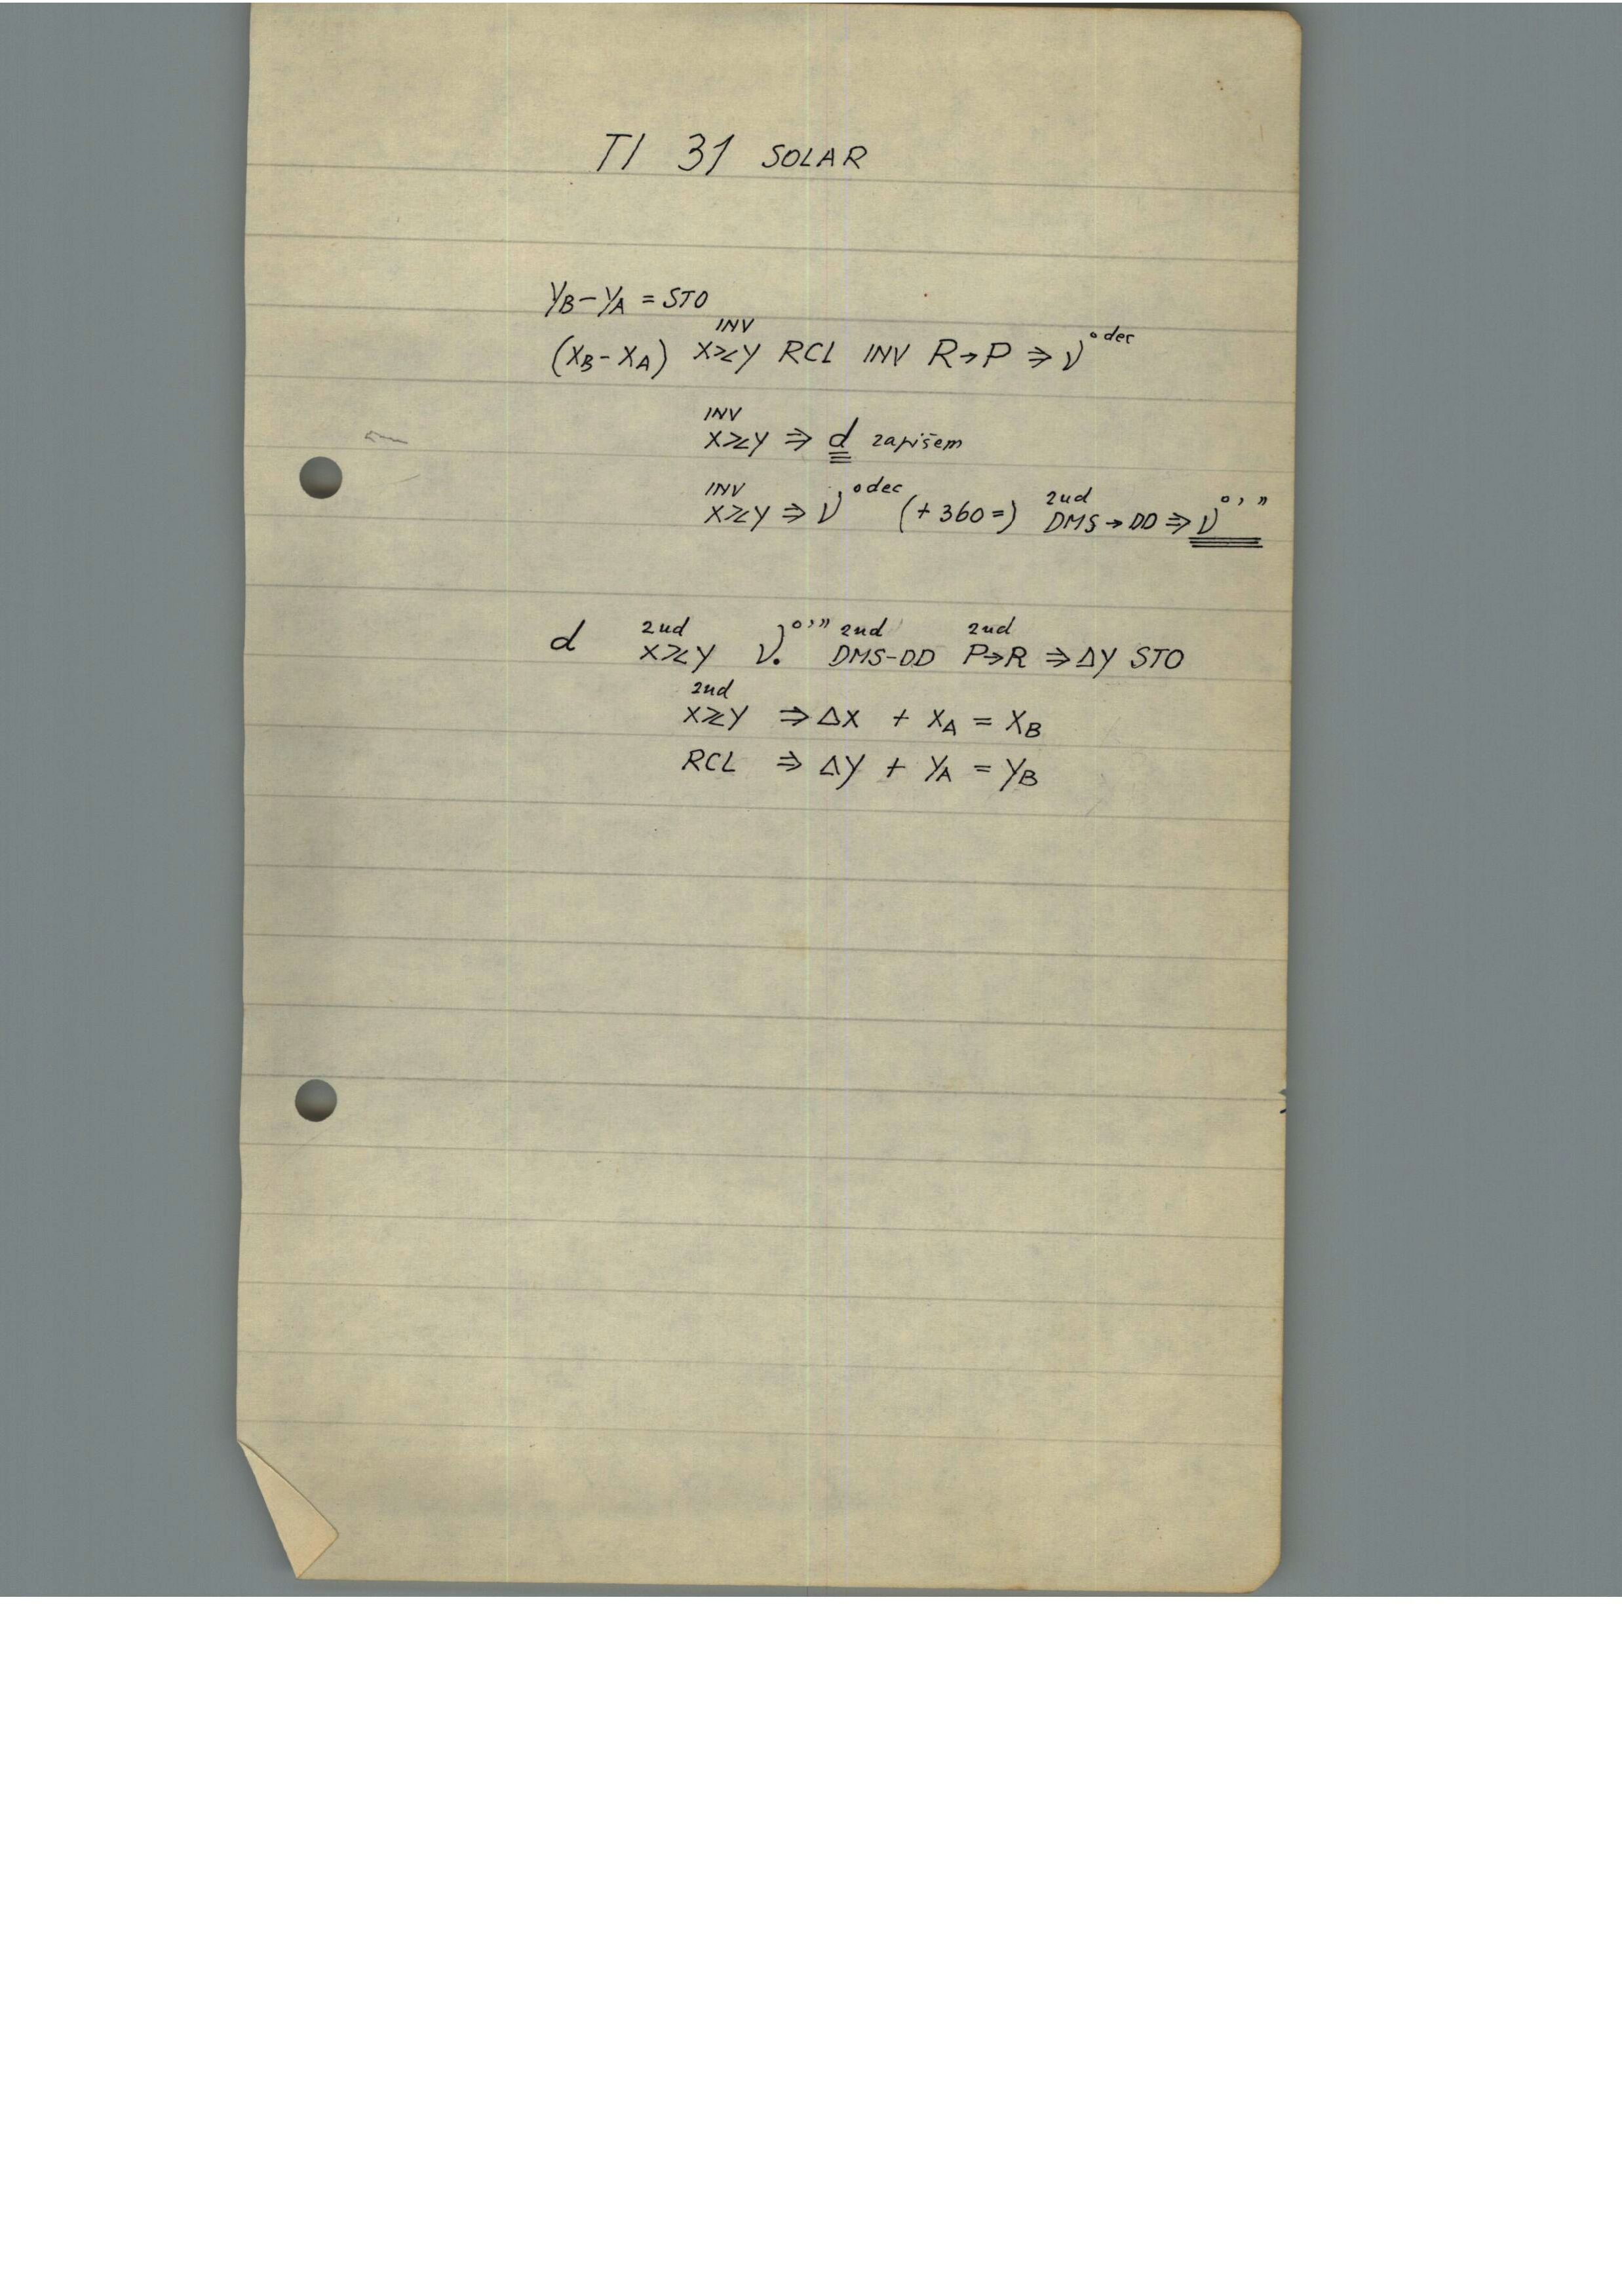 TI 31 SOLAR
YB - YA = STO
(XB - XA) INV X≷Y RCL INV R→P ⇒ ν° dec
INV X≷Y ⇒ d zapišem
INV X≷Y ⇒ ν° dec (+ 360 =) 2nd DMS → DD ⇒ ν° ' "
d 2nd X≷Y ν° ' " 2nd DMS-DD 2nd P→R ⇒ ΔY STO
2nd X≷Y ⇒ ΔX + XA = XB
RCL ⇒ ΔY + YA = YB